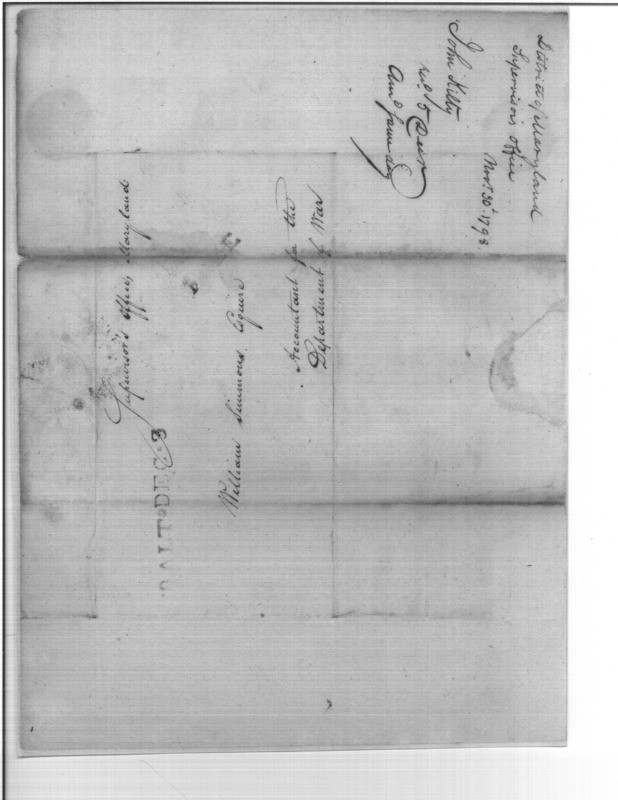 District of Maryland
Supervisors Office
Novr. 30th. 1798.
John Kilty
recd. 5 Decr
And same day
Supervisor's Office, Maryland
BALTo DEC 3
William Simmons Esquire
Accountant for the
Department of War